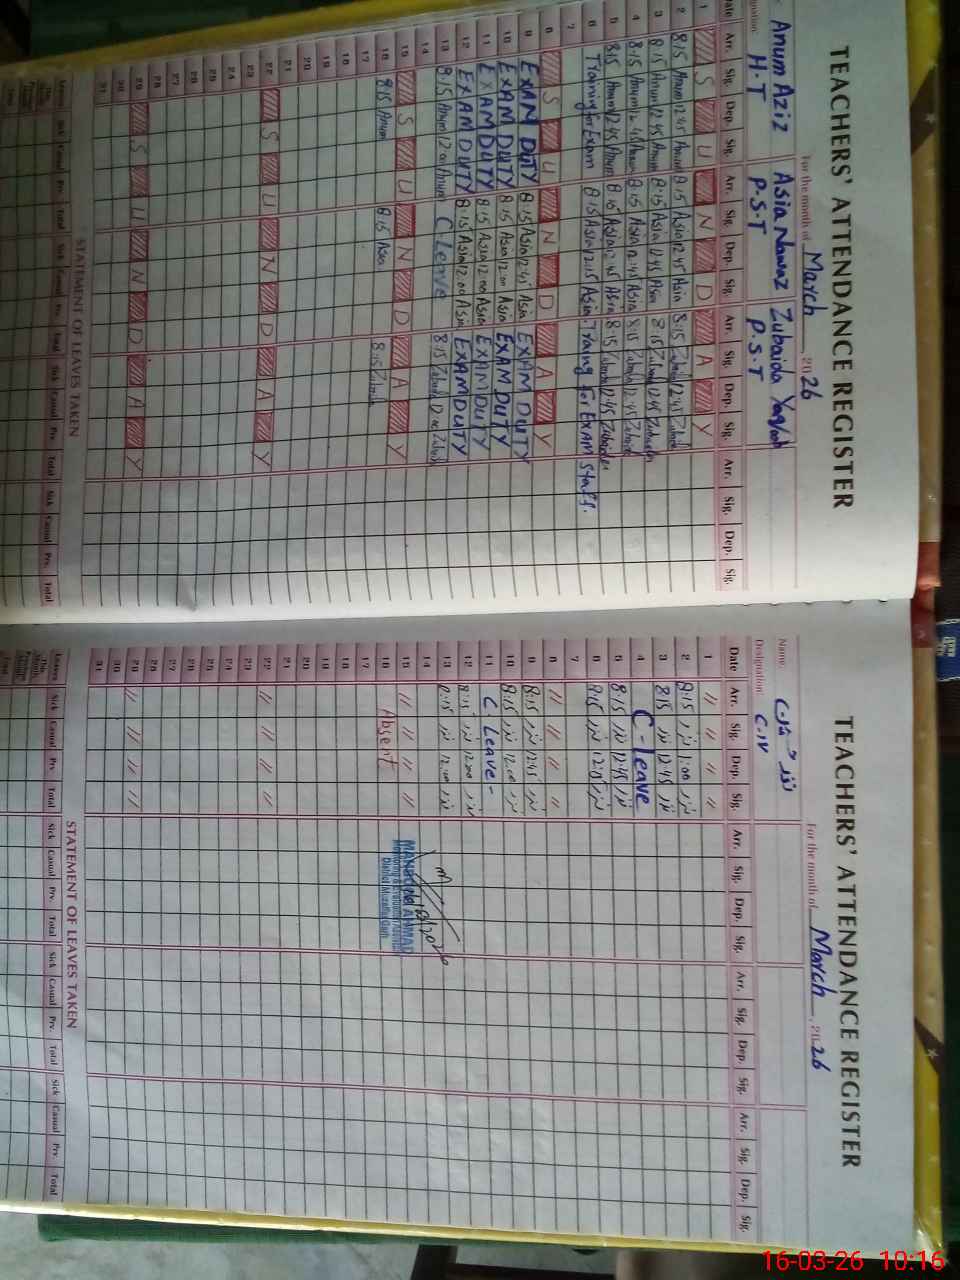 TEACHERS' ATTENDANCE REGISTER
For the month of March, 2026
Anum Aziz Asia Nawaz Zubaida
H.T P.S.T P.S.T
Date Arr. Sig. Dep. Sig. Arr. Sig. Dep. Sig. Arr. Sig. Dep. Sig. Arr. Sig. Dep. Sig.
1 S U N D A Y
2 8:15 Anum 12:45 Anum 8:15 Asia 12:45 Asia 8:15 12:45
3 8:15 Anum 12:45 Anum 8:15 Asia 12:45 Asia 8:15 12:45
4 8:15 Anum 12:45 Anum 8:15 Asia 12:45 Asia 8:15 12:45
5 8:15 Anum 12:45 Anum 8:15 Asia 12:45 Asia 8:15 12:45
6 Training for Exam 8:15 Asia 12:15 Asia Traing for Exam staff.
7
8 S U N D A Y
9 EXAM DUTY 8:15 Asia 12:45 Asia EXAM DUTY
10 EXAM DUTY 8:15 Asia 12:00 Asia EXAM DUTY
11 EXAM DUTY 8:15 Asia 12:00 Asia EXAM DUTY
12 EXAM DUTY 8:15 Asia 12:00 Asia EXAM DUTY
13 8:15 Anum 12:00 Anum C Leave 8:15
14
15 S U N D A Y
16 8:15 Anum 8:15 Asia 8:15
17
18
19
20
21
22 S U N D A Y
23
24
25
26
27
28
29 S U N D A Y
30
31
STATEMENT OF LEAVES TAKEN
Leaves Sick Casual Prv. Total Sick Casual Prv. Total Sick Casual Prv. Total Sick Casual Prv. Total
TEACHERS' ATTENDANCE REGISTER
For the month of March, 2026
Name:
Designation: C.IV
Date Arr. Sig. Dep. Sig. Arr. Sig. Dep. Sig. Arr. Sig. Dep. Sig. Arr. Sig. Dep. Sig.
1 〃 〃 〃 〃
2 8:15 نذر 1:00 نذر
3 8:15 نذر 12:45 نذر
4 C-leave
5 8:15 نذر 12:45 نذر
6 8:15 نذر 12:15 نذر
7
8 〃 〃 〃 〃
9 8:15 نذر 12:45 نذر
10 8:15 نذر 12:00 نذر
11 C Leave-
12 8:15 نذر 12:00 نذر
13 8:15 نذر 12:00 نذر
14
15 〃 〃 〃 〃
16 Absent
17
18
19
20
21
22 〃 〃 〃 〃
23
24
25
26
27
28
29 〃 〃 〃 〃
30
31
AHMAD
Monitoring & Evaluation
District Muzaffargarh
STATEMENT OF LEAVES TAKEN
Leaves Sick Casual Prv. Total Sick Casual Prv. Total Sick Casual Prv. Total Sick Casual Prv. Total
16-03-26 10:16